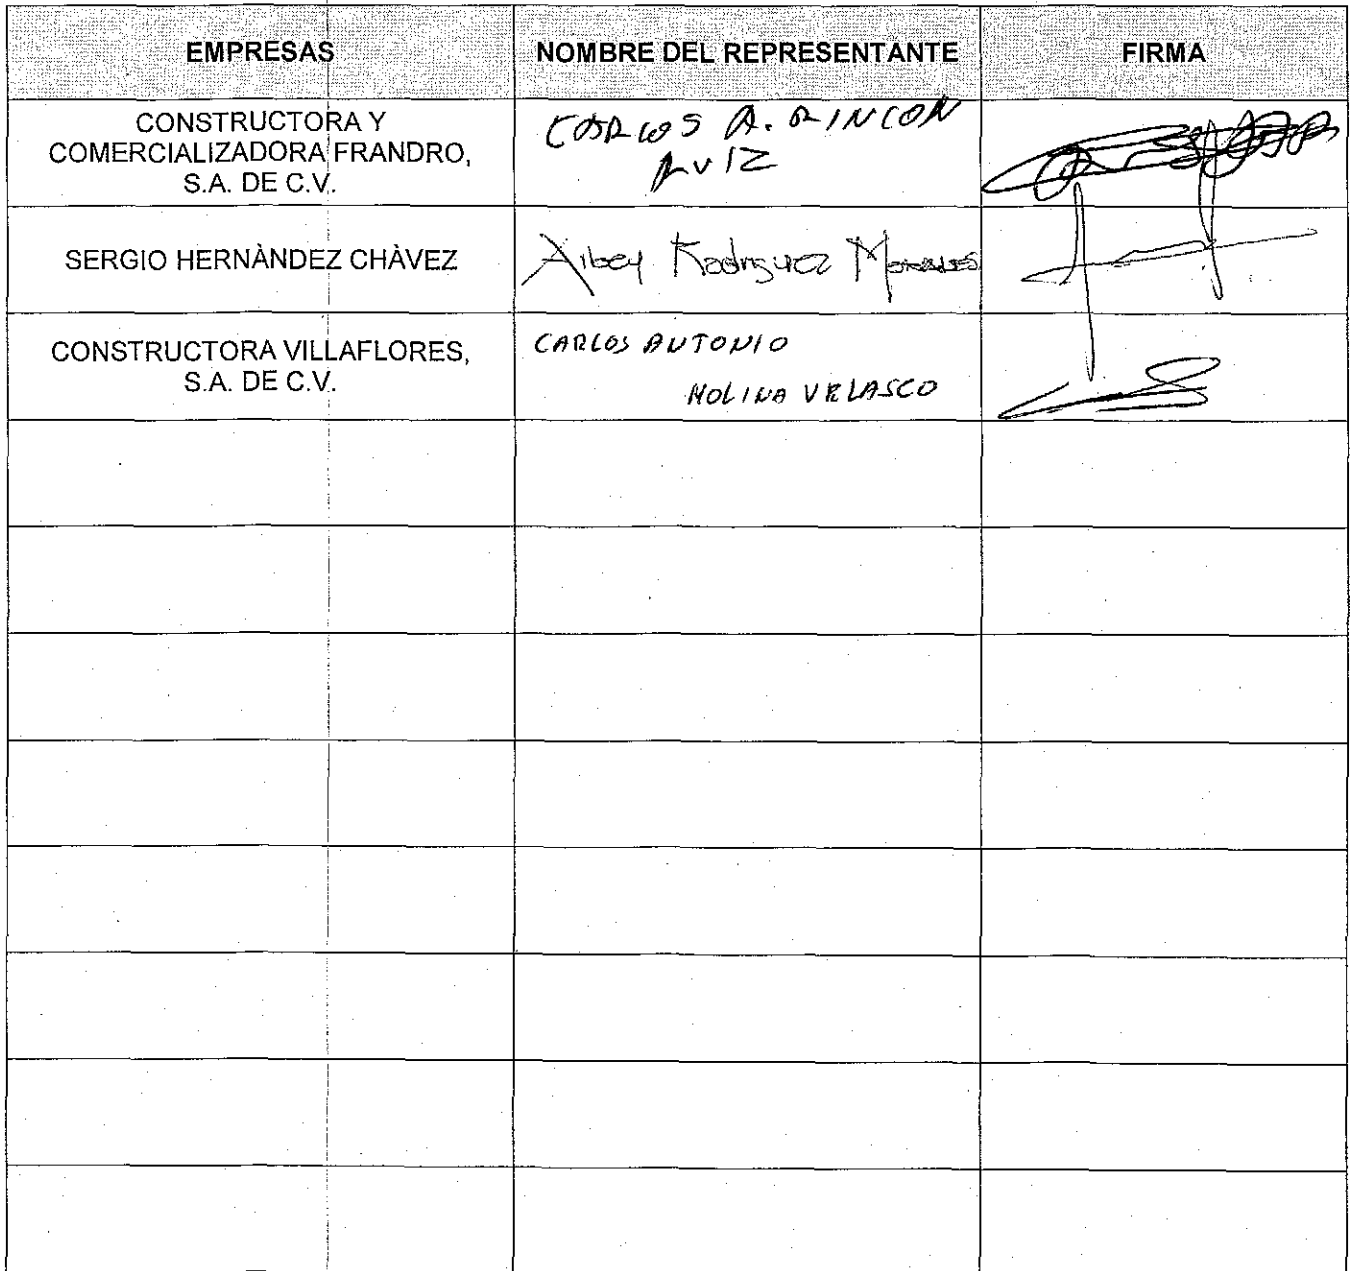 EMPRESAS
NOMBRE DEL REPRESENTANTE
FIRMA
CONSTRUCTORA Y
COMERCIALIZADORA FRANDRO,
S.A. DE C.V.
CARLOS A. RINCON
RUIZ
SERGIO HERNÀNDEZ CHÀVEZ
Aibey Rodriguez Morales
CONSTRUCTORA VILLAFLORES,
S.A. DE C.V.
CARLOS ANTONIO
MOLINA VELASCO